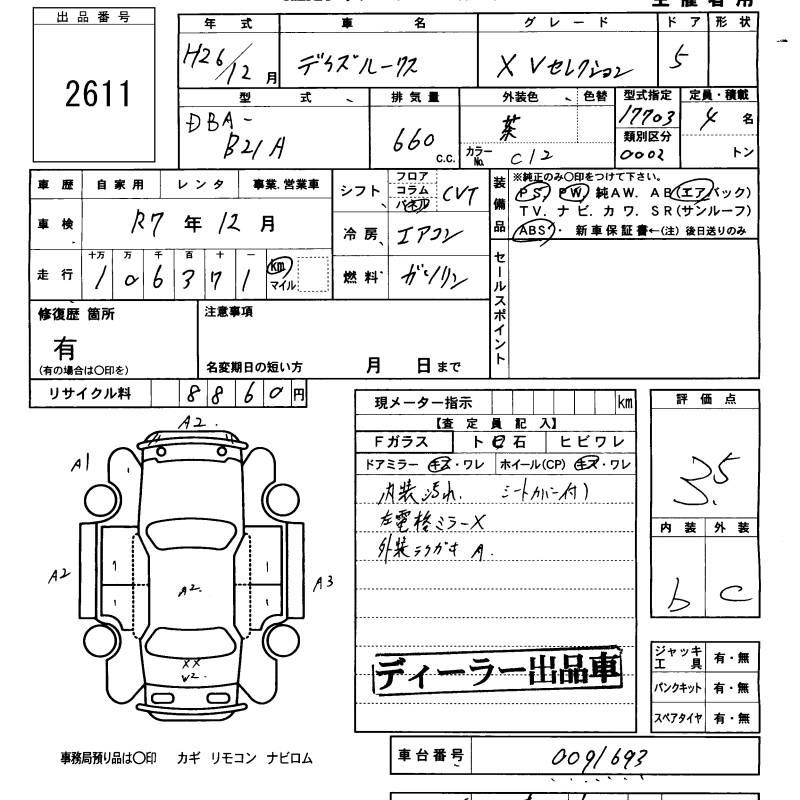 出品番号
2611
年式 車名 グレード ドア 形状
H26/12月 デイズルークス X Vセレクション 5
型式 排気量 外装色 色替 型式指定 定員・積載
DBA-B21A 660c.c. 茶 17703 4名
カラーNo. C12 類別区分 0002 トン
車歴 自家用 レンタ 事業.営業車
車検 R7年12月
十万 万 千 百 十 一
走行 106371 km マイル
シフト フロア コラム パネル CVT
冷房 エアコン
燃料 ガソリン
装備品
※純正のみ〇印をつけて下さい。
PS. PW. 純AW. AB(エアバック)
TV. ナビ. カワ. SR(サンルーフ)
ABS. 新車保証書←(注)後日送りのみ
セールスポイント
修復歴 箇所
有
(有の場合は〇印を)
注意事項
名変期日の短い方 月 日まで
リサイクル料 8860円
現メーター指示 km
【査定員記入】
Fガラス ト石 ヒビワレ
ドアミラー キズ・ワレ ホイール(CP) キズ・ワレ
内装汚れ. シートカバー付)
左電格ミラーX
外装ラクガキ A.
ディーラー出品車
評価点
3.5
内装 外装
b C
ジャッキ工具 有・無
パンクキット 有・無
スペアタイヤ 有・無
A2.
A1
A2
A2.
A3
XX
V2.
事務局預り品は〇印 カギ リモコン ナビロム
車台番号 0091693